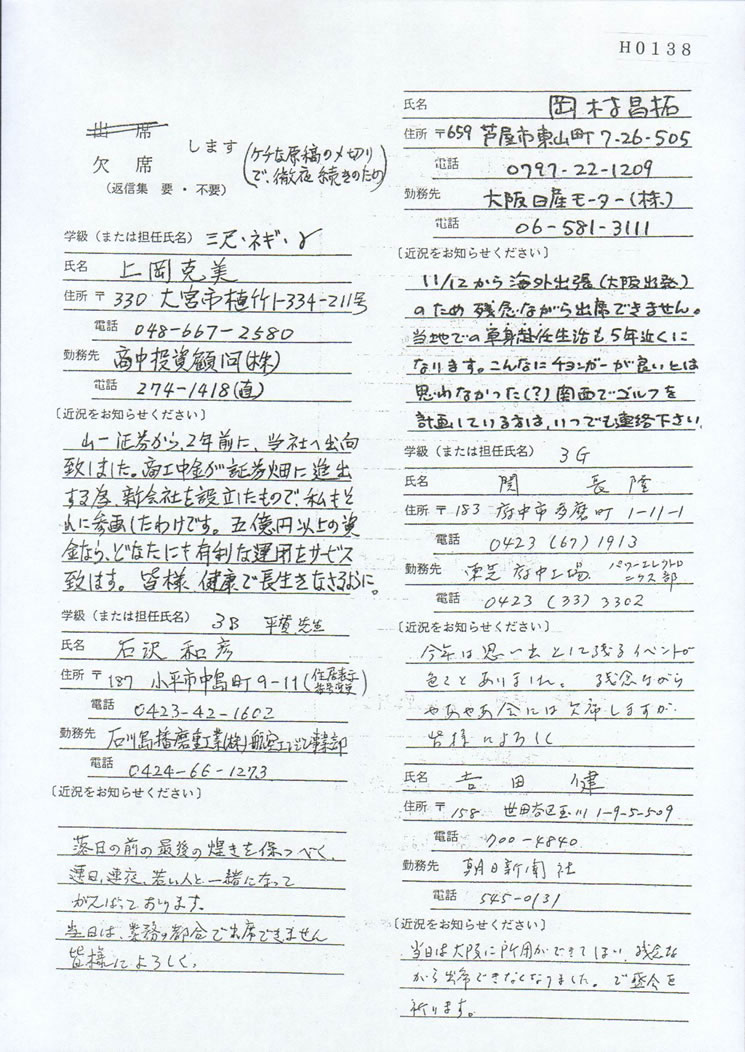 H0138
出 席
欠 席
します
(ケチな原稿の〆切り
で、徹夜続きのため)
(返信集 要・不要)
学級(または担任氏名) 三尺・ネギ・γ
氏名 上岡克美
住所 〒 330 大宮市植竹1-334-211号
電話 048-667-2580
勤務先 商中投資顧問(株)
電話 274-1418(直)
〔近況をお知らせください〕
山一証券から、2年前に、当社へ出向
致しました。商工中金が証券畑に進出
する為、新会社を設立したもので、私もそ
れに参画したわけです。五億円以上の資
金なら、どなたにも有利な運用をサービス
致します。皆様、健康で長生きなさるように。
学級(または担任氏名) 3B 平賀先生
氏名 石沢和彦
住所 〒 187 小平市中島町9-11(住居表示
電話 0423-42-1602
勤務先 石川島播磨重工業(株)航空エンジン事業部
電話 0424-66-1273
〔近況をお知らせください〕
落日の前の最後の煌きを保つべく、
連日、連夜、若い人と一緒になって
がんばっております。
当日は、業務の都合で出席できません
皆様によろしく。
氏名 岡村昌拓
住所 〒659 芦屋市東山町7-26-505
電話 0797-22-1209
勤務先 大阪日産モーター(株)
電話 06-581-3111
〔近況をお知らせください〕
11/12から海外出張(大阪出発)
のため残念ながら出席できません。
当地での単身赴任生活も5年近くに
なります。こんなにチョンガーが良いとは
思わなかった(?)関西でゴルフを
計画している方は、いつでも連絡下さい。
学級(または担任氏名) 3G
氏名 関 長隆
住所 〒 183 府中市多磨町 1-11-1
電話 0423(67)1913
勤務先 東芝府中工場 パワーエレクトロ
ニクス部
電話 0423(33)3302
〔近況をお知らせください〕
今年は思い出として残るイベントが
色々とありました。残念ながら
やあやあ会には欠席しますが
皆様によろしく
氏名 吉田 健
住所 〒 158 世田谷区玉川1-9-5-509
電話 700-4840
勤務先 朝日新聞社
電話 545-0131
〔近況をお知らせください〕
当日は大阪に所用ができてしまい、残念な
がら出席できなくなりました。ご盛会を
祈ります。